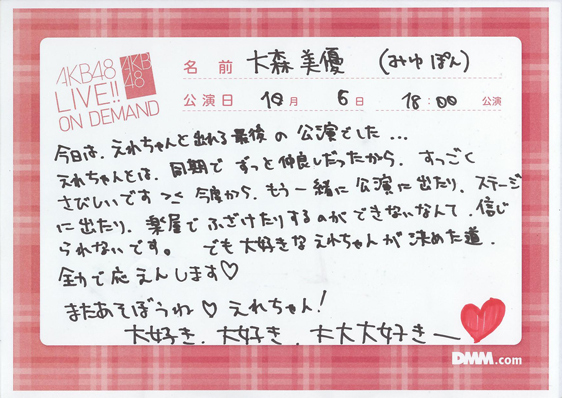 AKB48
LIVE!!
ON DEMAND
AKB
48
名前 大森美優 (みゆぽん)
公演日 10月 6日 18:00 公演
今日は、えれちゃんと出れる最後の公演でした...
えれちゃんとは、同期でずっと仲良しだったから、すっごく
さびしいです >< 今度から、もう一緒に公演に出たり、ステージ
に出たり、楽屋でふざけたりするのができないなんて、信じ
られないです。 でも大好きなえれちゃんが決めた道、
全力で応えんします♡
またあそぼうね♡えれちゃん!
大好き、大好き、大大大好きー
DMM.com